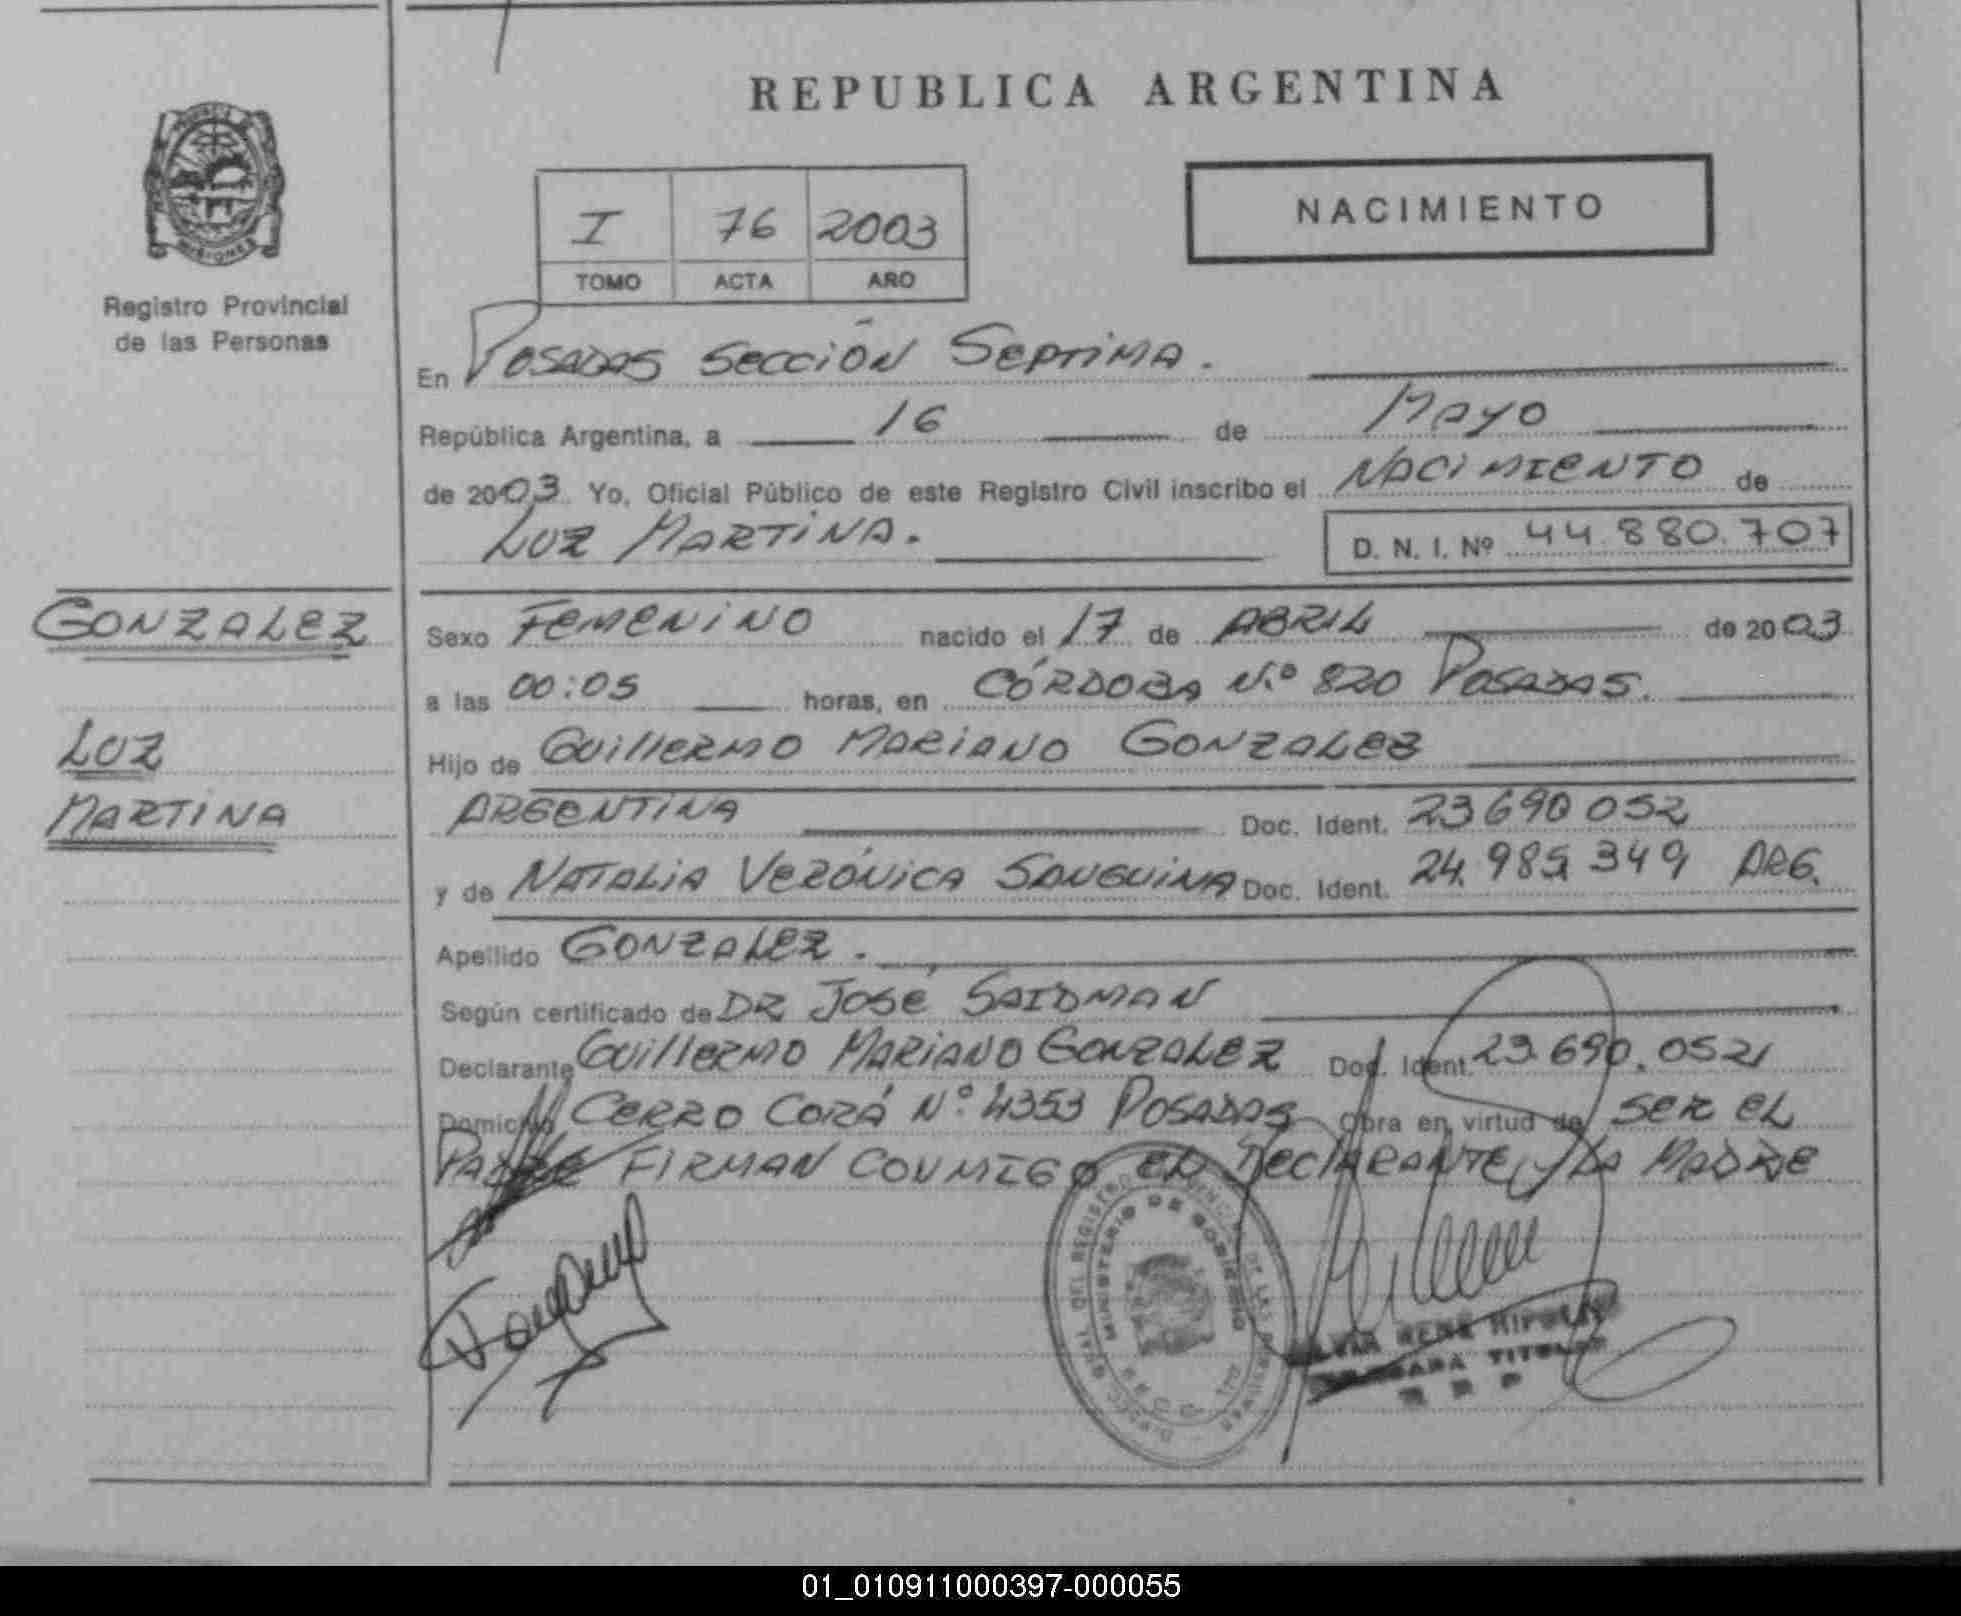 REPUBLICA ARGENTINA
NACIMIENTO
I 76 2003
TOMO ACTA AÑO
MISIONES
Registro Provincial
de las Personas
En Posadas Sección Septima.
República Argentina, a 16 de Mayo
de 2003 Yo, Oficial Público de este Registro Civil inscribo el Nacimiento de
Luz Martina. D. N. I. Nº 44.880.707
GONZALEZ
LUZ
MARTINA
Sexo Femenino nacido el 17 de ABRIL de 2003
a las 00:05 horas, en Córdoba N.º 820 Posadas.
Hijo de Guillermo Mariano Gonzalez
Argentina Doc. Ident. 23690052
y de Natalia Verónica Sanguina Doc. Ident. 24.985.349 ARG.
Apellido Gonzalez.
Según certificado de DR José Saidman
Declarante Guillermo Mariano Gonzalez Doc. Ident. 23.690.052
Domicilio Cerro Corá Nº 4353 Posadas Obra en virtud de ser el
Padre Firman conmigo el Declarante y la Madre
MINISTERIO DE GOBIERNO
RENE
TITULAR
01_010911000397-000055